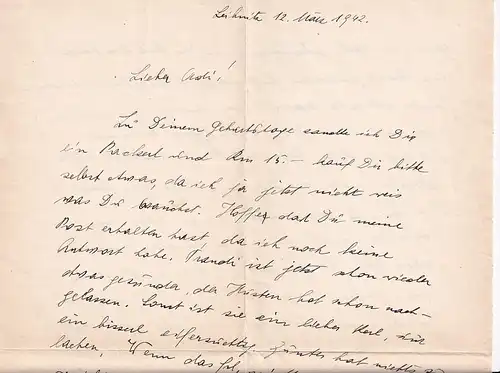 Leibnitz 12. März 1942.
Lieber Audi!
Zu Deinem Geburtstage sandte ich Dir
ein Packerl und Rm 15.— kauf Dir bitte
selbst etwas, da ich ja jetzt nicht weis
was Du brauchst. Hoffe, das Du meine
Post erhalten hast, da ich noch keine
Antwort habe. Traudi ist jetzt schon wieder
etwas gesünder, der Husten hat schon nach-
gelassen. Sonst ist sie ein lieber Kerl, nur
ein bisserl eifersüchtig. Günter hat nichts
lachen, Wenn das